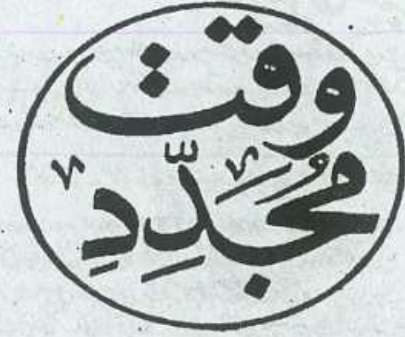 مُجَدِّدِ
وقت